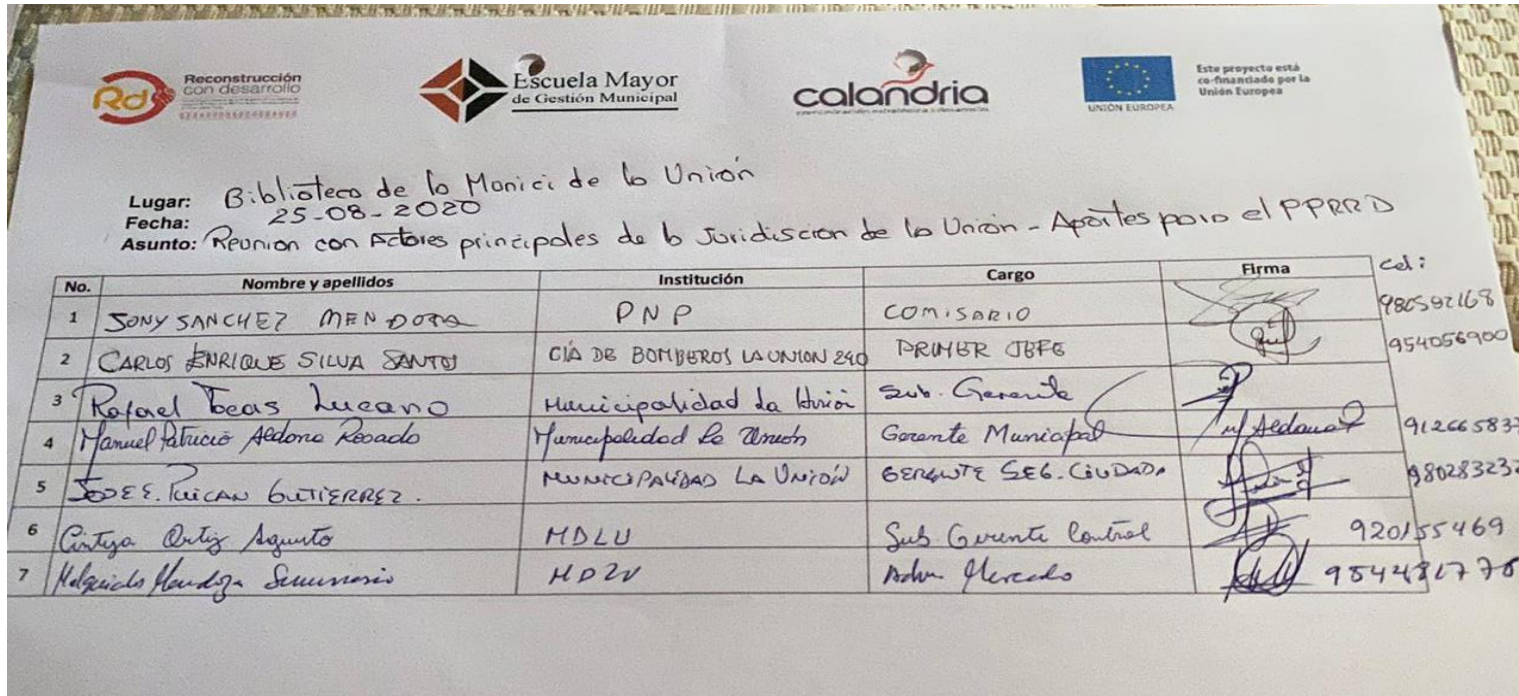 Reconstrucción
con desarrollo
Escuela Mayor
de Gestión Municipal
calandria
UNIÓN EUROPEA
Este proyecto está
co-financiado por la
Unión Europea
Lugar: Biblioteca de la Monici de la Unión
Fecha: 25-08-2020
Asunto: Reunion con Actores principales de la Juridiscion de la Unión - Aportes para el PPRRD
No. Nombre y apellidos Institución Cargo Firma Cel:
1 JONY SANCHEZ MENDOZA PNP COMISARIO 980592168
2 CARLOS ENRIQUE SILVA SANTOS CÍA DE BOMBEROS LA UNION 240 PRIMER JEFE 954056900
3 Rafael Lucano Municipalidad La Unión Sub. Gerente
4 Manuel Patricio Aldana Rosado Municipalidad La Unión Gerente Municipal 912665837
5 PUICAN GUTIERREZ. MUNICIPALIDAD LA UNIÓN GERENTE SEG. CIUDADA 980283232
6 Cintya Ortiz Agurto MDLU Sub Gerente Control 920155469
7 Mendoza Seminario Adm Mercado